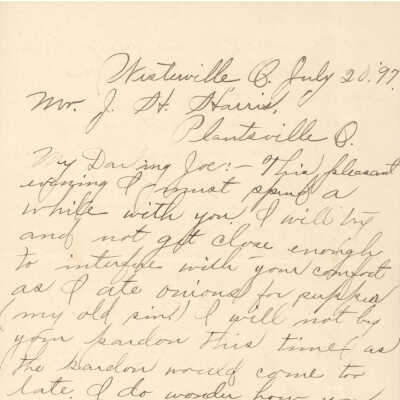 Westerville O. July 20, '97.
Mr. J. H. Harris,
Plantsville O.
My Darling Joe:- This pleasant
evening I must spend a
while with you. I will try
and not get close enough
to interfere with your comfort
as I ate onions for supper
(my old sin) I will not by
your pardon this time as
the pardon would come too
late. I do wonder how you